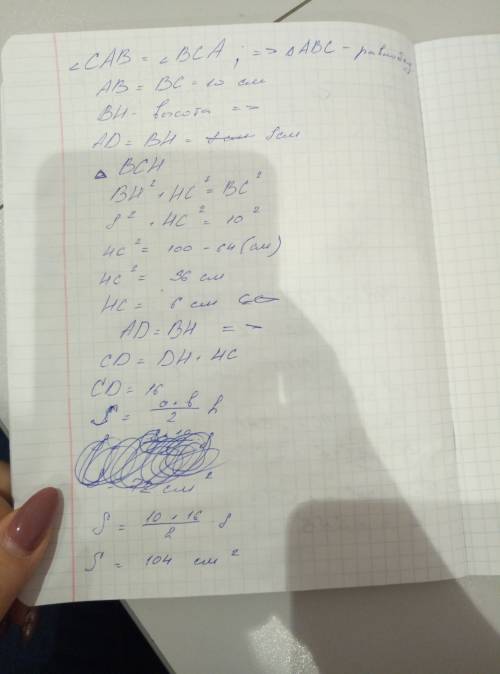 ∠CAB = ∠BCA ; => ΔABC -
AB = BC = 10 см
BH - высота =>
AD = BH = 8см
Δ BCH
BH² + HC² = BC²
8² + HC² = 10²
HC² = 100 - 64 (см)
HC² = 36 см
HC = 6 см
AD = BH =>
CD = DH + HC
CD = 16
S = a + b / 2 h
= 72 см²
S = 10 + 16 / 2 8
S = 104 см²